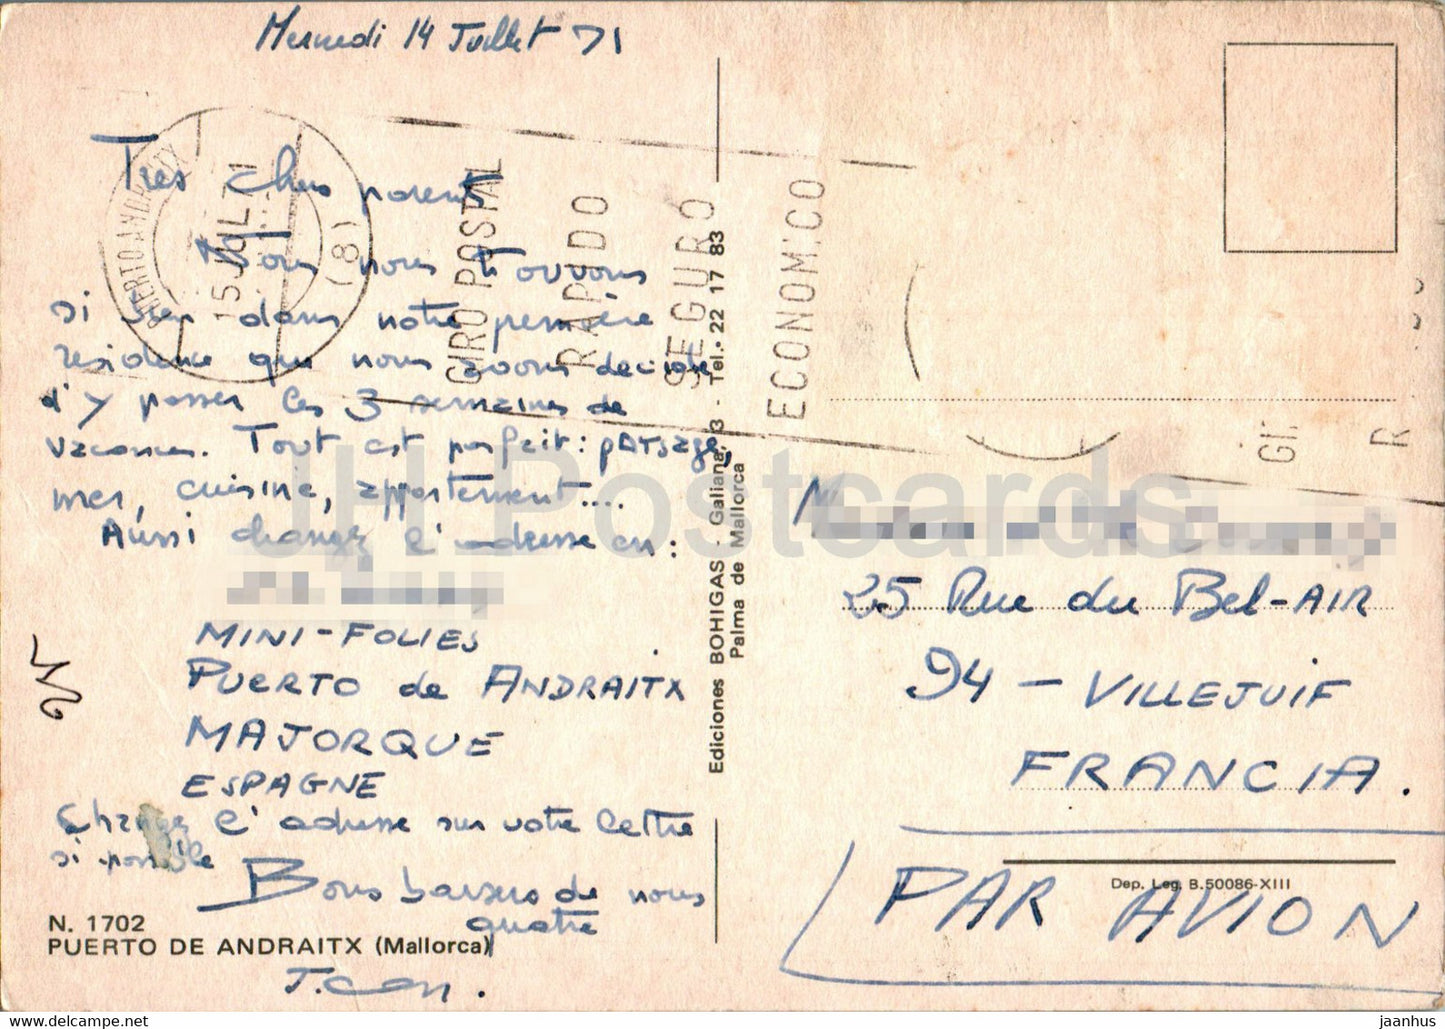 Mercredi 14 Juillet 71
Tres chers parents
Nous nous trouvons
si bien dans notre première
residence que nous avons decidé
d'y passer les 3 semaines de
vacances. Tout est parfait : paysage,
mer, cuisine, appartement....
Aussi changez l'adresse en :
MINI-FOLIES
PUERTO de ANDRAITX
MAJORQUE
ESPAGNE
Changez l'adresse sur votre lettre
si possible
Bons baisers de nous
quatre
N. 1702
PUERTO DE ANDRAITX (Mallorca)
PUERTO ANDRAITX
15 JUL 71
(8)
GIRO POSTAL
RAPIDO
SEGURO
ECONOMICO
GI
R
Ediciones BOHIGAS - Galiana, 3 - Tel. 22 17 83
Palma de Mallorca
25 Rue du Bel-AIR
94 - VILLEJUIF
FRANCIA.
Dep. Leg. B.50086-XIII
PAR AVION
JH Postcards
https://www.delcampe.net
jaanhus